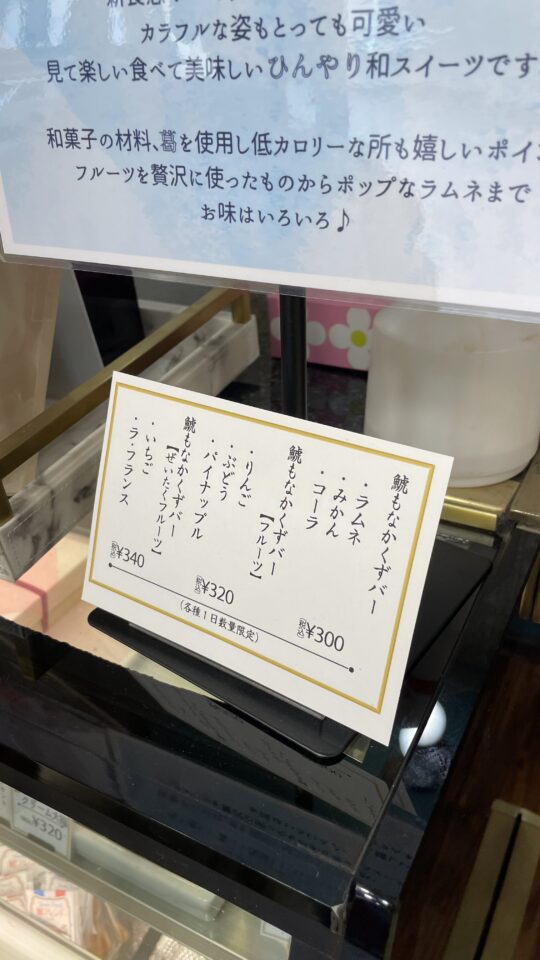 カラフルな姿もとっても可愛い
見て楽しい食べて美味しいひんやり和スイーツです
和菓子の材料、葛を使用し低カロリーな所も嬉しいポイ
フルーツを贅沢に使ったものからポップなラムネまで
お味はいろいろ♪
鯱もなかくずバー
・ラムネ
・みかん
・コーラ
税込¥300
鯱もなかくずバー
【フルーツ】
・りんご
・ぶどう
・パイナップル
税込¥320
鯱もなかくずバー
【ぜいたくフルーツ】
・いちご
・ラ・フランス
税込¥340
(各種1日数量限定)
¥320